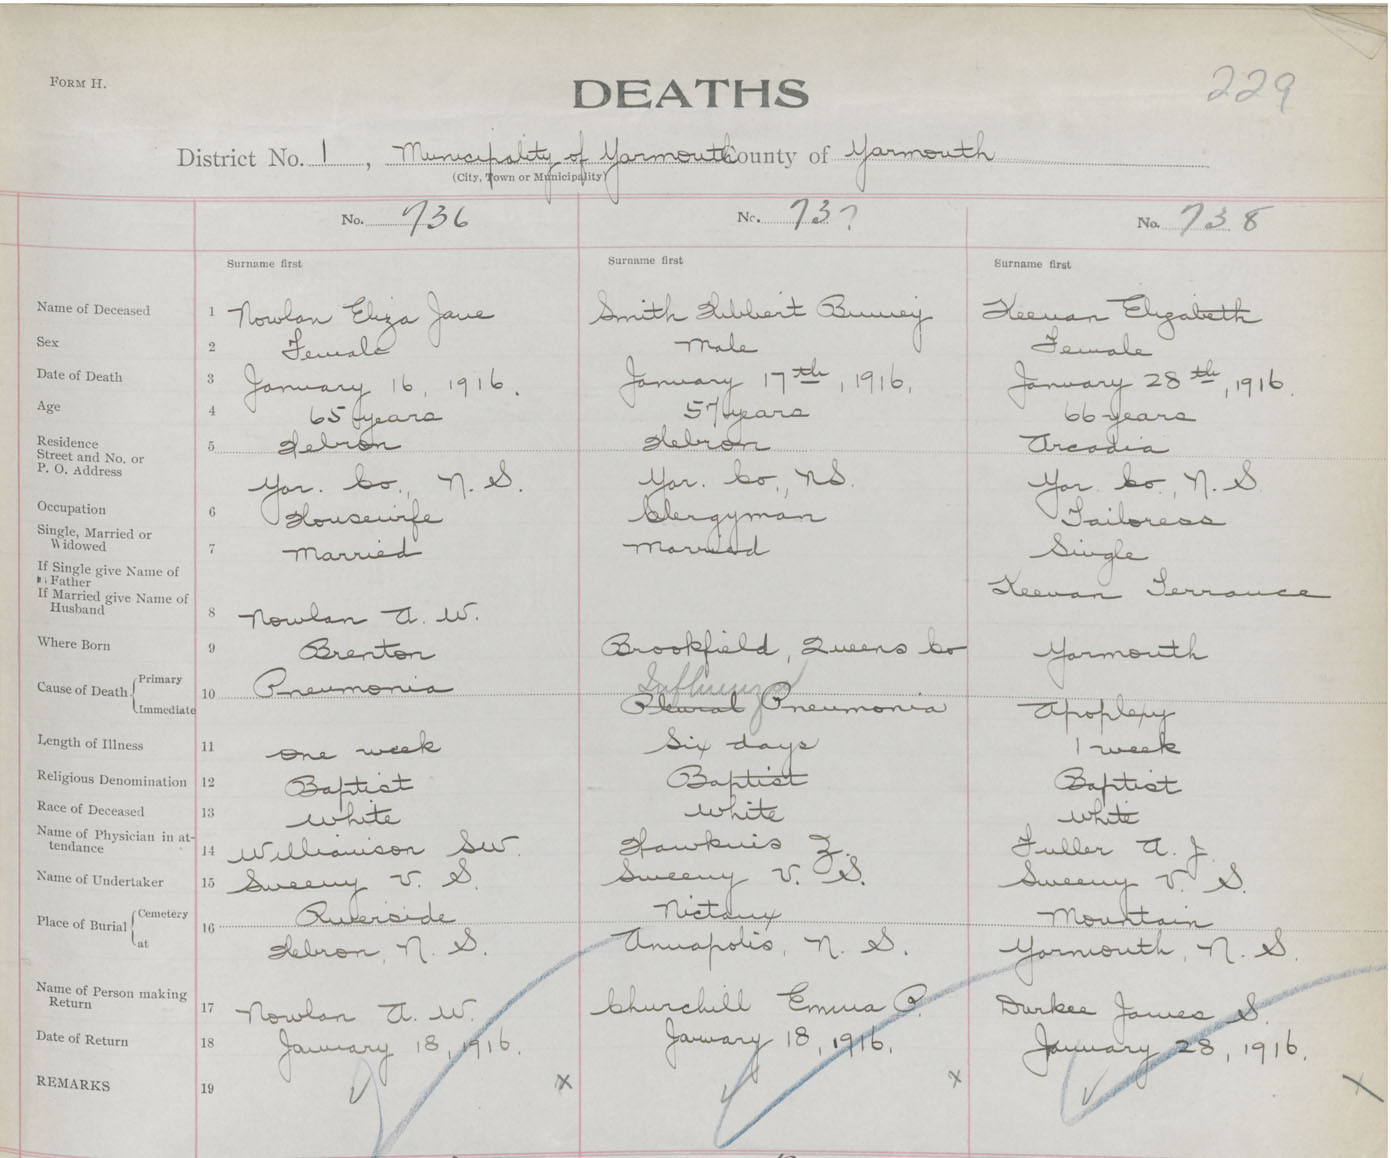 FORM H.
DEATHS
229
District No. 1, Municipality of Yarmouth County of Yarmouth
(City, Town or Municipality)
No. 736 No. 737 No. 738
Surname first Surname first Surname first
Name of Deceased 1 Nowlan Eliza Jane Smith Hibbert Keevan Elizabeth
Sex 2 Female Male Female
Date of Death 3 January 16, 1916. January 17th, 1916. January 28th, 1916.
Age 4 65 years 57 years 66 years
Residence Street and No. or P. O. Address 5 Hebron Hebron Arcadia
Yar. Co., N. S. Yar. Co., N S. Yar. Co., N. S.
Occupation 6 Housewife Clergyman Tailoress
Single, Married or Widowed 7 Married Married Single
If Single give Name of Father
Keevan Terrance
If Married give Name of Husband 8 Nowlan A. W.
Where Born 9 Brenton Brookfield, Queens Co Yarmouth
Cause of Death Primary Immediate 10 Pneumonia Influenza
Pleural Pneumonia Apoplexy
Length of Illness 11 one week Six days 1 week
Religious Denomination 12 Baptist Baptist Baptist
Race of Deceased 13 White White White
Name of Physician in attendance 14 Williamson S W. Hawkins Z. Fuller A. J.
Name of Undertaker 15 Sweeny V. S. Sweeny V. S. Sweeny V. S.
Place of Burial Cemetery at 16 Riverside Nictaux Mountain
Hebron, N. S. Annapolis, N. S. Yarmouth, N. S.
Name of Person making Return 17 Nowlan A. W. Churchill Emma P. Durkee James S.
Date of Return 18 January 18, 1916. January 18, 1916. January 28, 1916.
REMARKS 19 x x x